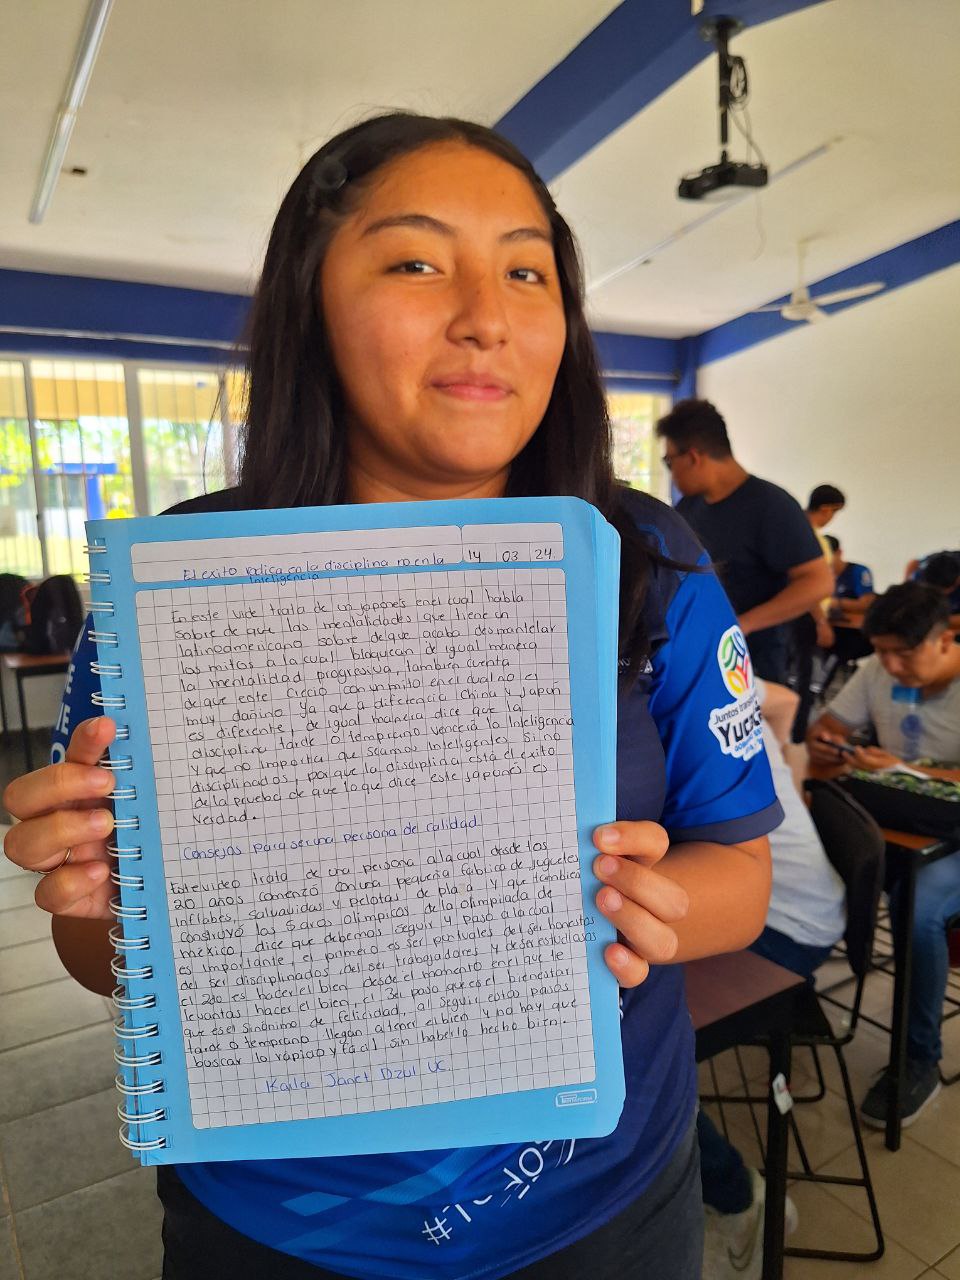 El exito radica en la disciplina no en la
Inteligencia
14 03 24
En este vide trata de un japonés en el cual habla
sobre de que las mentalidades que tiene un
latinoamericano sobre de que acaba desmantelar
los mitos a la cual bloquean de igual manera
la mentalidad progresiva, tambien cuenta
de que este creció con un mito en el cual no es
muy dañino ya que a diferencia China y Japón
es diferente, de igual manera dice que la
disciplina tarde o temprano vencerá la Inteligencia
y que no importa que seamos Inteligentes si no
disciplinados, porque la disciplina está el exito
de la prueba de que lo que dice este japonés es
verdad.
Consejos para ser una persona de calidad
Este video trata de una persona a la cual desde los
20 años comenzó con una pequeña fabrica de juguetes
inflables, salvavidas y pelotas de playa y que tambien
construyó los 5 aros olímpicos de la olimpiada de
méxico, dice que debemos seguir 4 paso a la cual
es importante, el primero es ser puntuales del ser honestos
del ser disciplinados del ser trabajadores y de ser estudiosos
el 2do es hacer el bien desde el momento en el que te
levantas hacer el bien, el 3er paso que es el bienestar
que es el sinónimo de felicidad, al seguir estos pasos
tarde o temprano llegan a tener el bien y no hay que
buscar lo rápido y fácil sin haberlo hecho bien.
Karla Janet Dzul UC.
Juntos transformemos
Yucatán